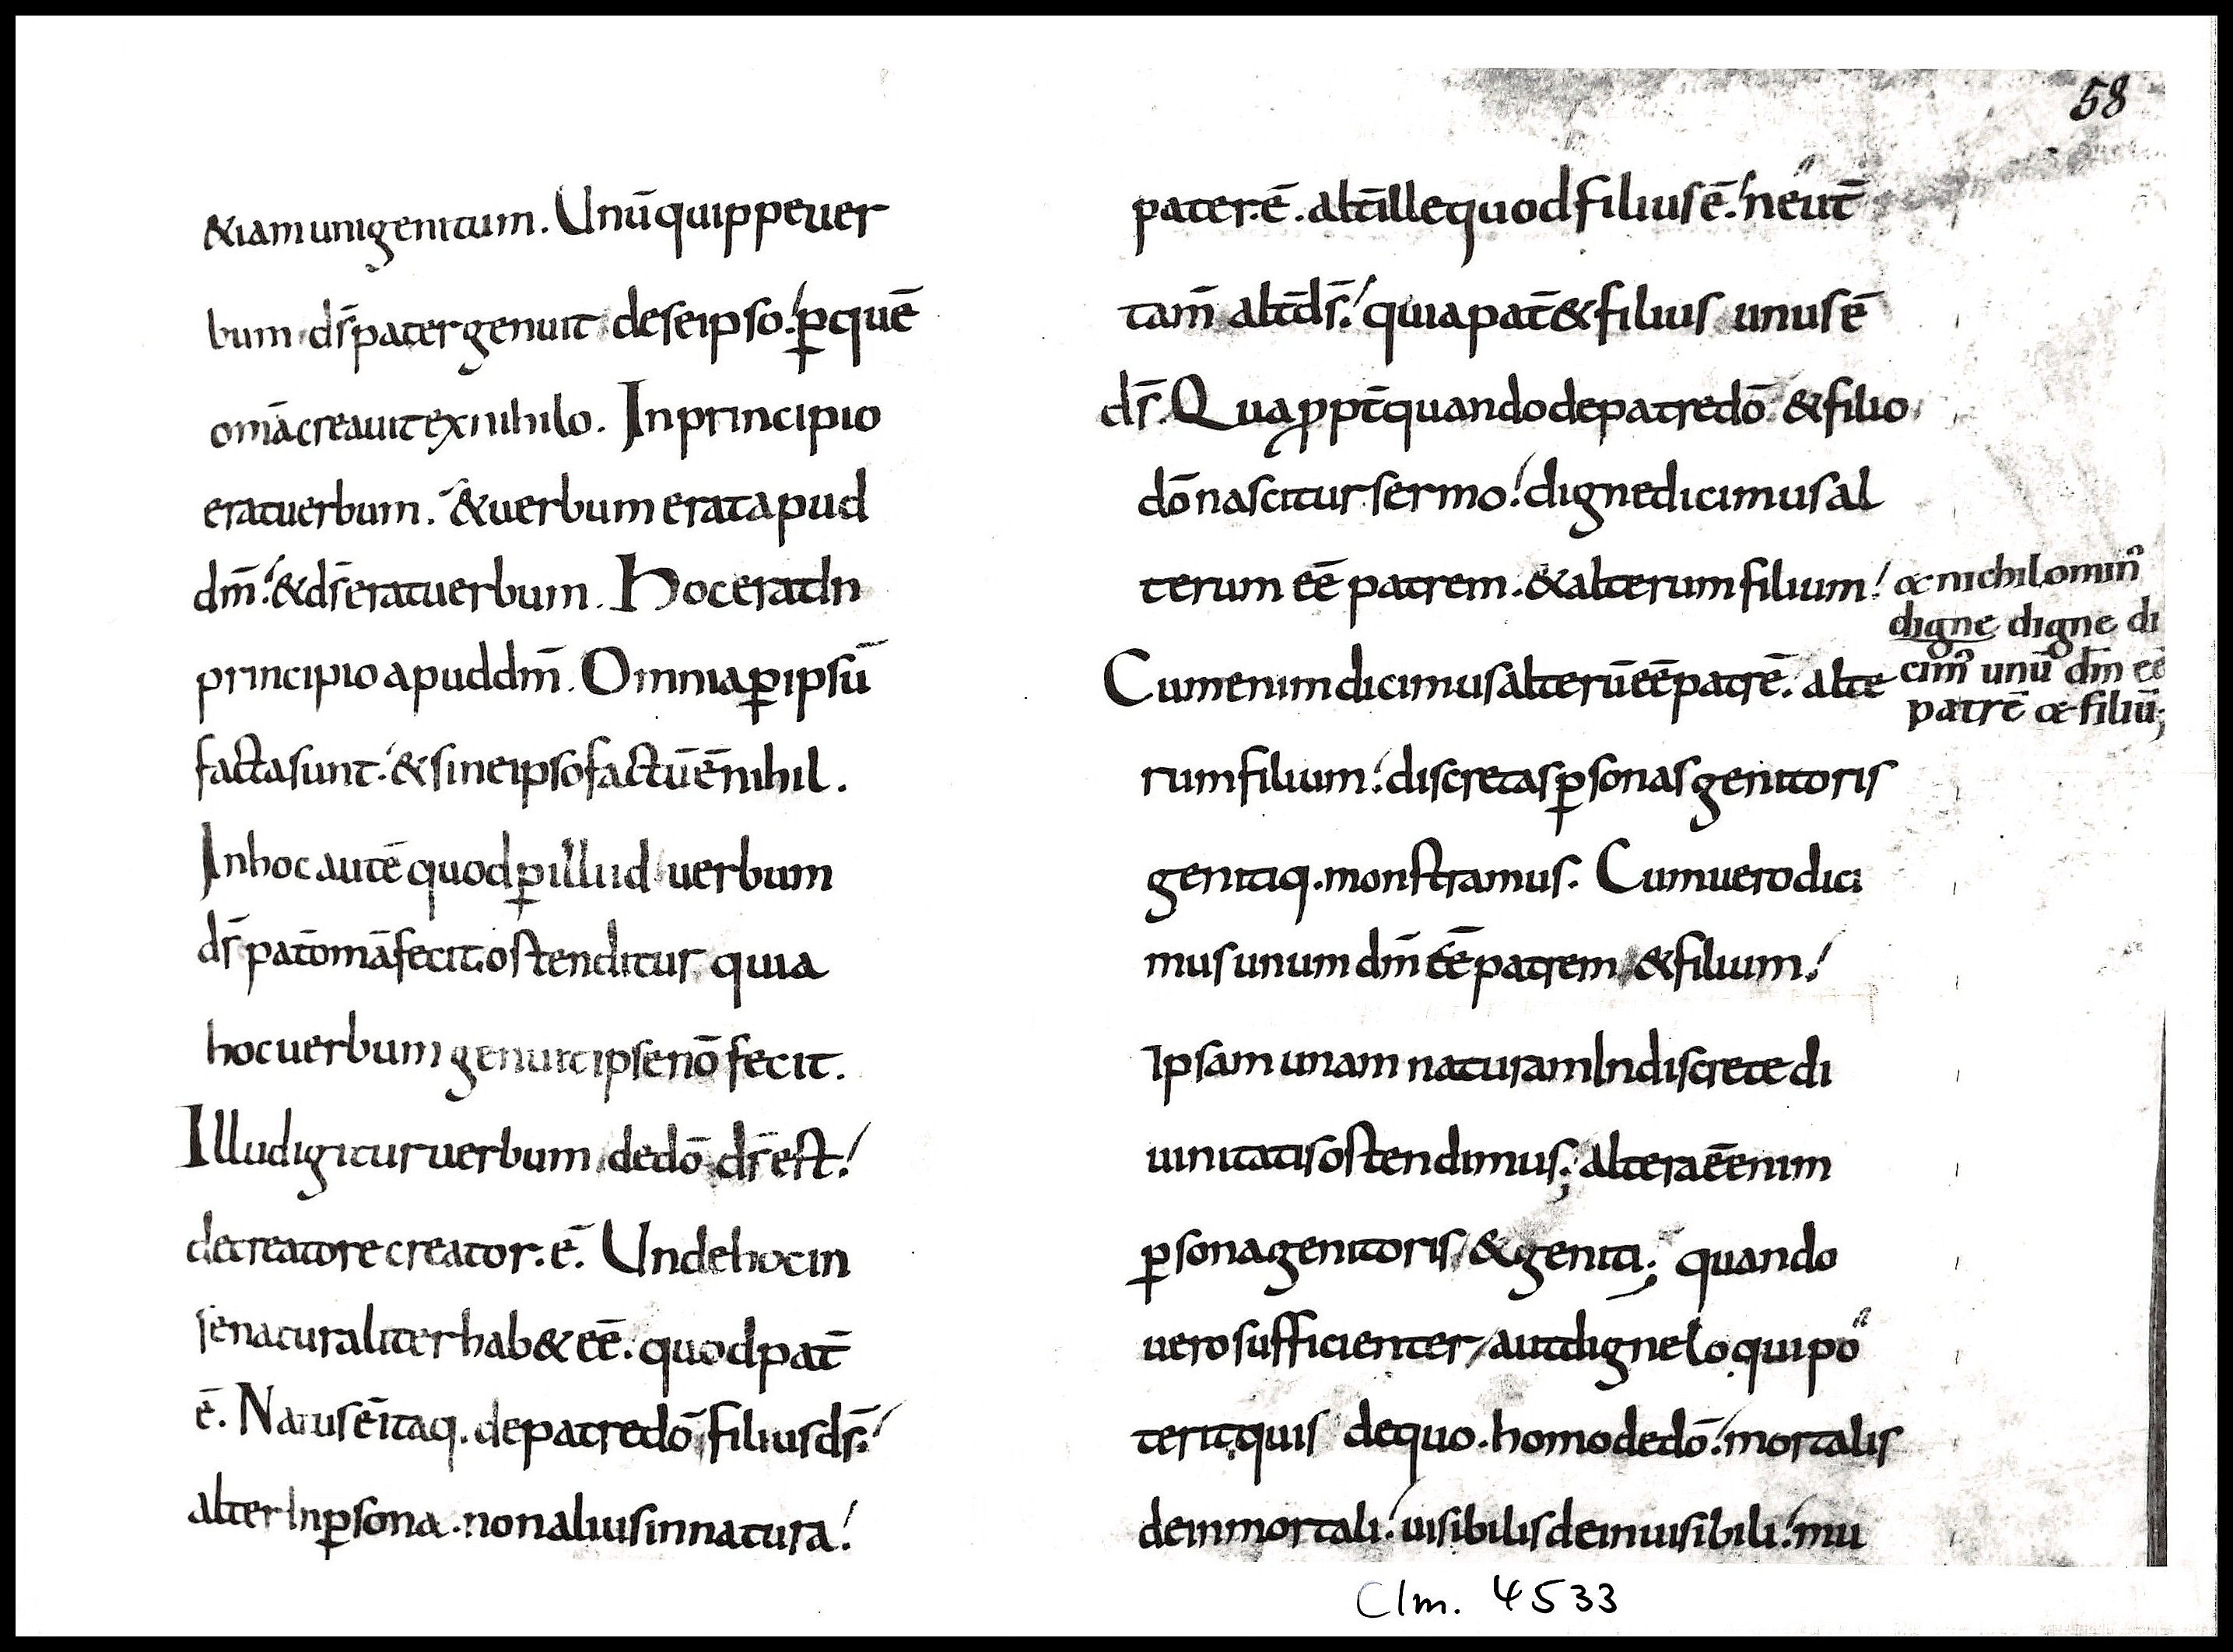 &iam unigenitum. Unū quippe uer
bum dr̄ pater genuit de se ipso.' ꝑ quē
om̄a creauit ex nihilo. In principio
erat uerbum. & uerbum erat apud
dm̄.' & dr̄ erat uerbum. Hoc erat In
principio apud dm̄. Omnia ꝑ ipsū
facta sunt.' & sine ipso factū ē nihil.
In hoc autē quod ꝑ illud uerbum
dr̄ pat̄ om̄a fecit. ostenditur quia
hoc uerbum genuit ipse nō fecit.
Illud igitur uerbum de dō dr̄ est.'
de creatore creator. ē. Unde hoc in
se naturaliter hab& eē. quod pat̄
ē. Natus ē itaq. de patre dō filius ds̄.'
alter In ꝑsona. non alius in natura.'
58
pater. ē. alt̄ ille quod filius ē.' ne ut̄
tam̄ alt̄ ds̄.' quia pat̄ & filius unus ē
dr̄. Quaꝓpt̄ quando de patre dō. & filio
dō nascitur sermo.' digne dicimus al
terum eē patrem. & alterum filium.'
& nichilomin᾽
digne digne di
cim᾽ unū dm̄ eē
patrē & filiū;
Cum enim dicimus alterū eē patrē. alte
rum filium.' discretas ꝑsonas genitoris
genitiq. monstramus. Cum uero dici
mus unum dm̄ eē patrem & filium.'
Ipsam unam naturam Indiscrete di
uinitatis ostendimus; altera ē enim
ꝑsona genitoris & geniti; quando
uero sufficienter aut digne loqui po
terit quis de quo. homo de dō.' mortalis
de inmortali.' uisibilis de inuisibili.' mu
Clm. 4533